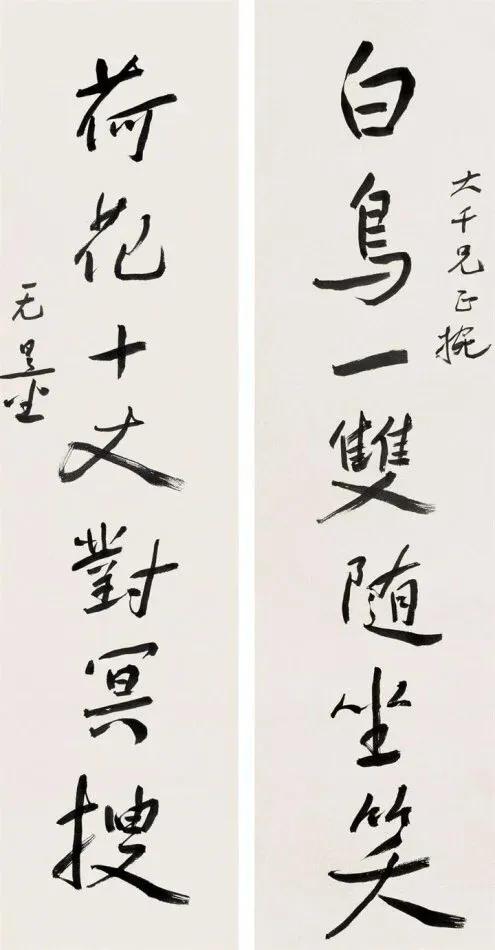 大千兄正捥
白鳥一雙随坐笑
荷花十丈對冥搜
无量